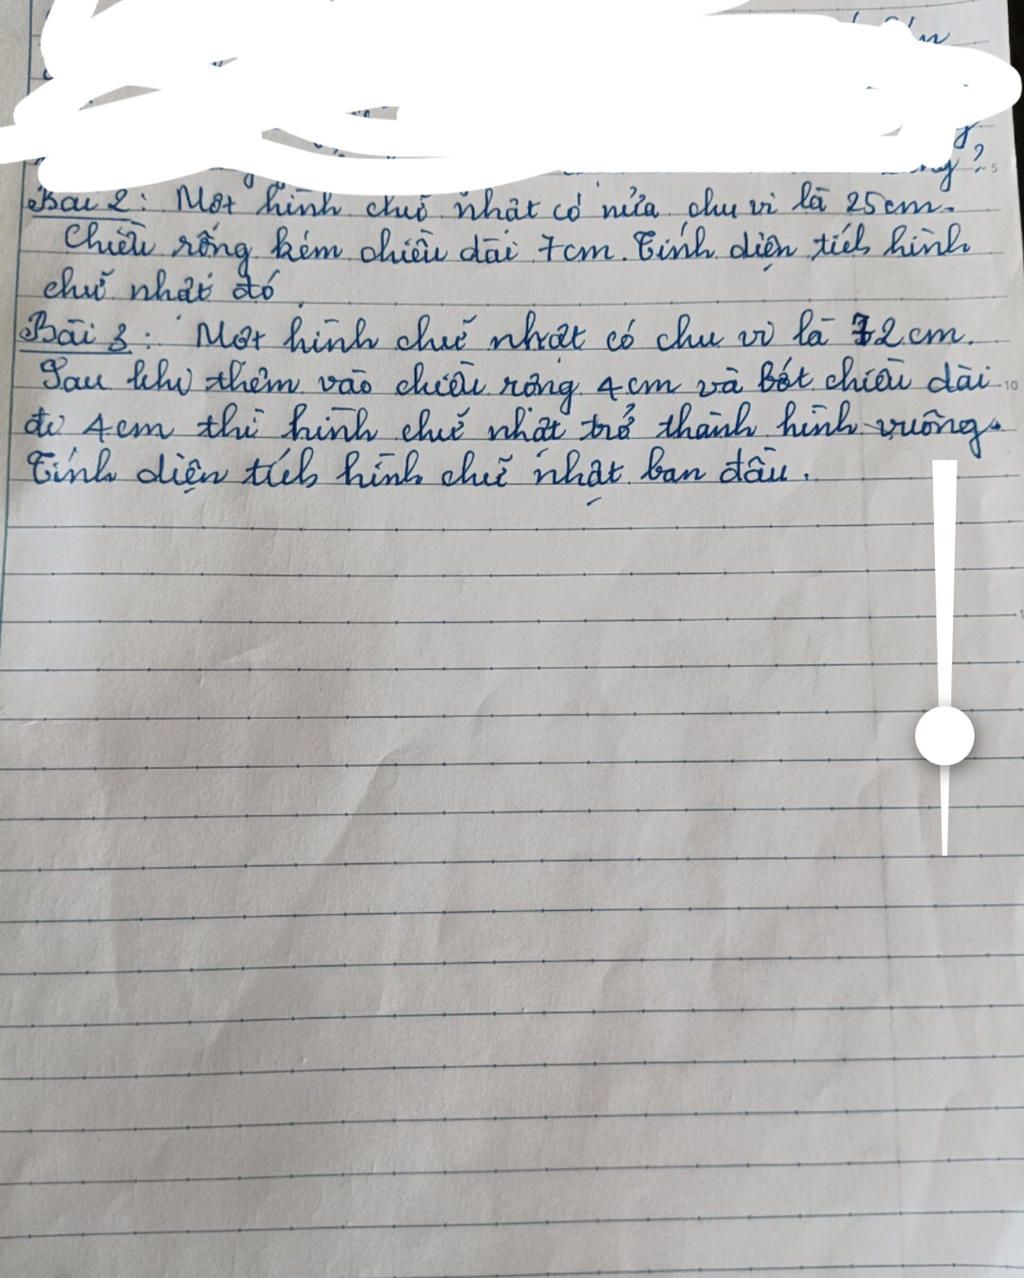 Bài 2: Một hình chữ nhật có nửa chu vi là 25cm.
Chiều rộng kém chiều dài 7cm. Tính diện tích hình
chữ nhật đó.
Bài 3: Một hình chữ nhật có chu vi là 72cm.
Sau khi thêm vào chiều rộng 4cm và bớt chiều dài
đi 4cm thì hình chữ nhật trở thành hình vuông.
Tính diện tích hình chữ nhật ban đầu.